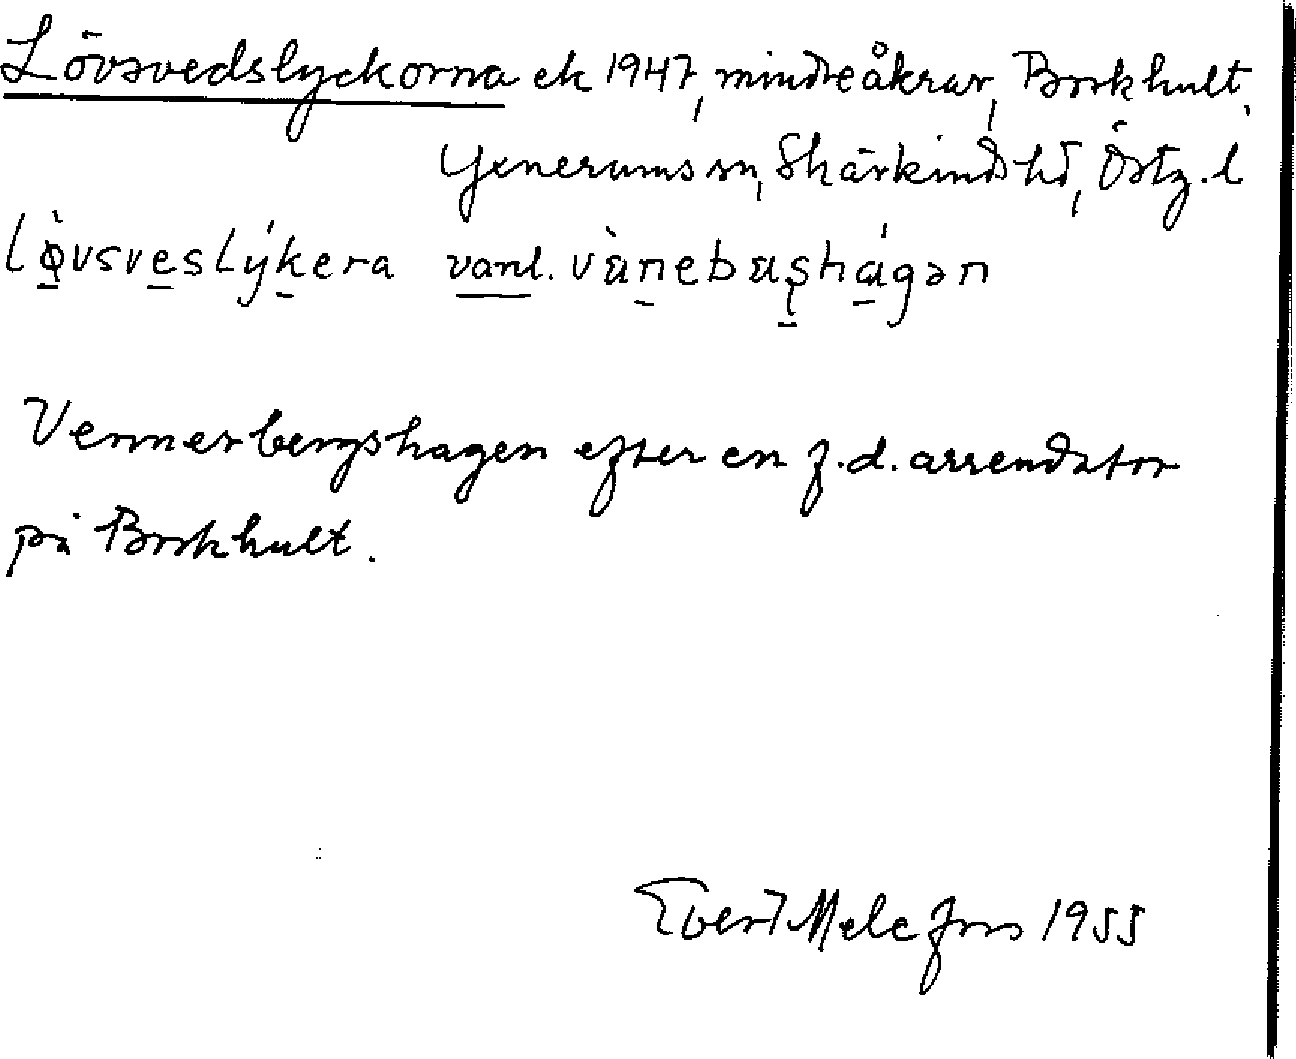 Lövsvedslyckorna ek 1947, mindre åkrar, Borkhult,
Yxnerums sn, Skärkinds hd, Östg. l
lø̀vsveslýkera vanl. vànebaʂhágən
Vennerbergshagen efter en f.d. arrendator
på Borkhult.
Evert Melefors 1955